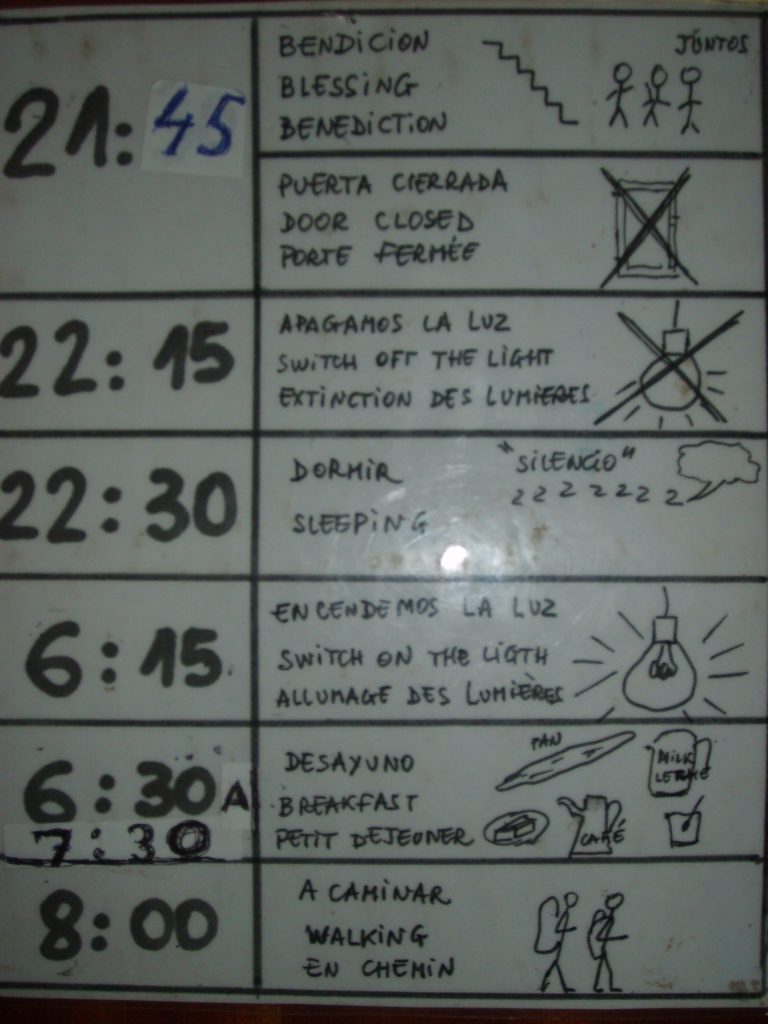 21:45
BENDICION
JUNTOS
BLESSING
BENEDICTION
PUERTA CIERRADA
DOOR CLOSED
PORTE FERMÉE
22:15
APAGAMOS LA LUZ
SWITCH OFF THE LIGHT
EXTINCTION DES LUMIERES
22:30
DORMIR
"SILENCIO"
ZZZZZZZ
SLEEPING
6:15
ENCENDEMOS LA LUZ
SWITCH ON THE LIGTH
ALLUMAGE DES LUMIÈRES
6:30 A
7:30
DESAYUNO
PAN
MILK
LECHE
BREAKFAST
PETIT DEJEUNER
CAFÉ
8:00
A CAMINAR
WALKING
EN CHEMIN